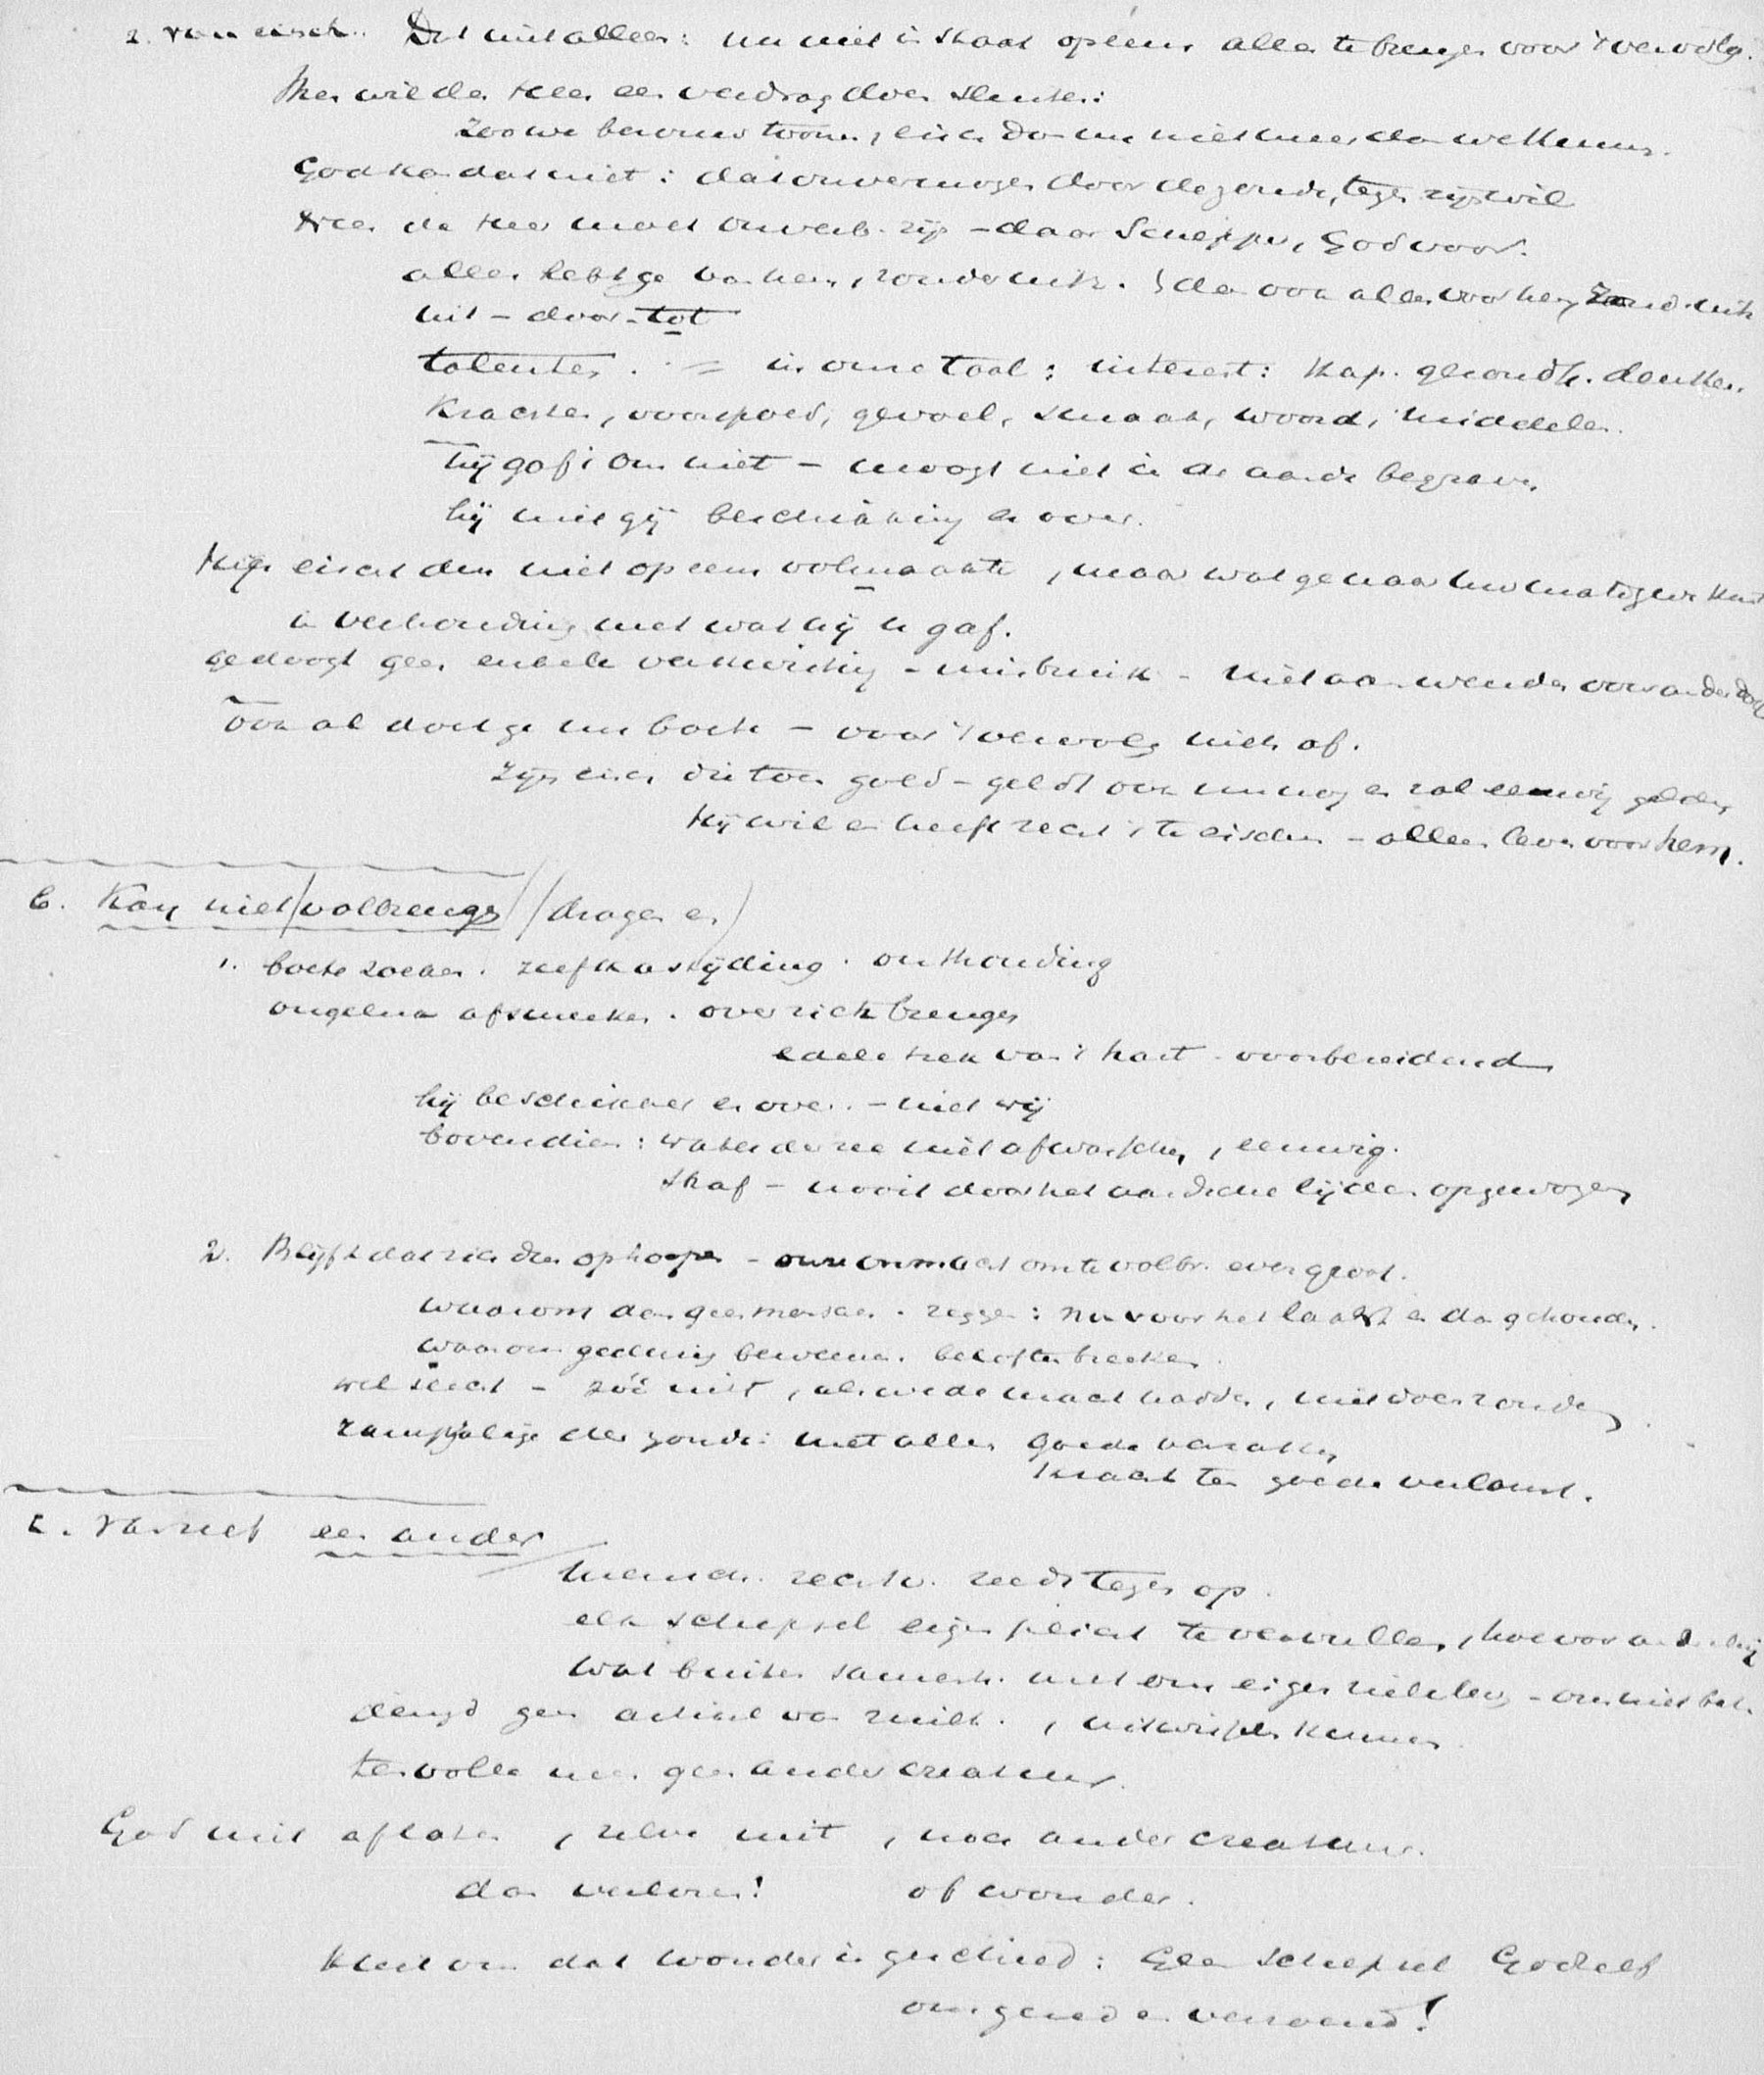 2. van eisch. Dat niet alleen: nu niet in staat opeens alles te brengen voor 't vervolg.
Men wil den Heer een verdrag doen sluiten:
zoo we berouw toonen, eisch dan nu niet meer dan we kunnen.
God kan dat niet: dat onvermogen door de zonde, tegen zijn wil
Neen de Heer moet onverb. zijn - daar Schepper, God voor.
alles hebt ge van hem, zonder uitz. dan ook alles voor hem, zond. uitz
uit - door - tot
talenten. = in onze taal: interest: kap. gezondh. denken.
Krachten, voorspoed, gevoel, smaak, woord, middelen.
hij gaf 't om niet - moogt niet in de aarde begraven,
hij niet gij beschikking er over.
Hij eischt dus niet opeens volmaakte, maar wat ge naar uw matige kunt
in verhouding met wat hij u gaf.
gedoogt geen enkele verkwisting - misbruik - niet aanwenden voor ander doel
ook al doet ge nu boete - voor 't vervolg niets af.
zijn eisch die toen gold - geldt ook nu nog en zal eeuwig gelden
Hij wil en heeft recht 't te eischen - alleen leven voor hem.
b. Kan niet volbrengen (dragen en)
1. boete zoeken. zelfkastijding. onthouding
ongeluk afsmeeken. over zich brengen
edele trek van 't hart - voorbereidend
hij beschikket er over. - niet wij
bovendien: water der zee niet afwasschen, eeuwig.
straf - nooit door het aardsche lijden opgewogen
2. Blijft dat zich dus ophoopen - onze onmacht om te volbr. even groot.
waarom dan geen mensch. zeggen: nu voor het laatst en dan gehouden.
waarom gedurig beweenen. beloften breken.
wel slecht - zóó niet, als we de macht hadden, niet doen zonden
rampzalige der zonde: met alle goede verzaken
kracht ten goede verlamt.
c. vanzelf een ander
mensch. rechtv. reeds tegen op.
elk schepsel eigen plicht te vervullen, hoe voor ander hij
wat buiten samenh. met ons eigen zieleleven - ons niet bat.
deugd geen artikel van ruil., uitwisselen kunnen
ten volle nu. geen ander creatuur.
God niet aflaten, zelve niet, noch ander creatuur.
dan verloren! of wonder.
Kniel voor dat wonder is geschied: Geen schepsel God zelf
ons genade en verzoend!